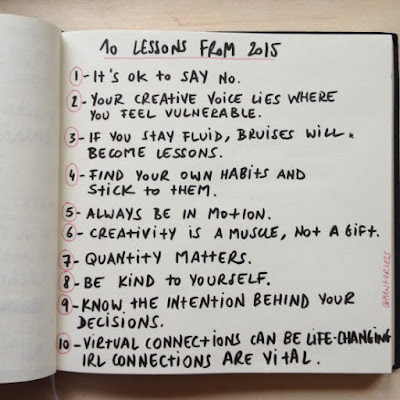 10 LESSONS FROM 2015
1 - IT'S OK TO SAY NO.
2 - YOUR CREATIVE VOICE LIES WHERE
YOU FEEL VULNERABLE.
3 - IF YOU STAY FLUID, BRUISES WILL
BECOME LESSONS.
4 - FIND YOUR OWN HABITS AND
STICK TO THEM.
5 - ALWAYS BE IN MOTION.
6 - CREATIVITY IS A MUSCLE, NOT A GIFT.
7 - QUANTITY MATTERS.
8 - BE KIND TO YOURSELF.
9 - KNOW THE INTENTION BEHIND YOUR
DECISIONS.
10 - VIRTUAL CONNECTIONS CAN BE LIFE-CHANGING
IRL CONNECTIONS ARE VITAL.
@MENTORLESS